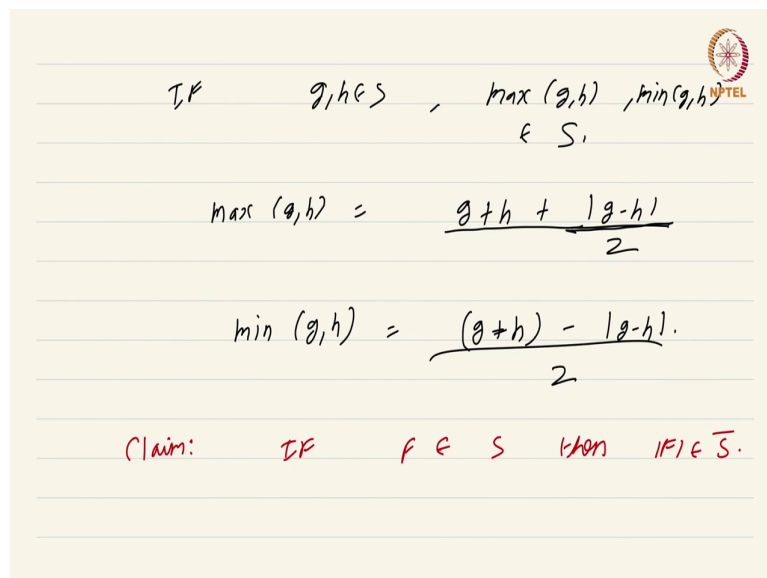 NPTEL
IF g,h ∈ S , max (g,h) , min (g,h)
∈ S.
max (g,h) = g+h + |g-h|
2
min (g,h) = (g+h) - |g-h|.
2
Claim: IF f ∈ S then |f| ∈ S̅.